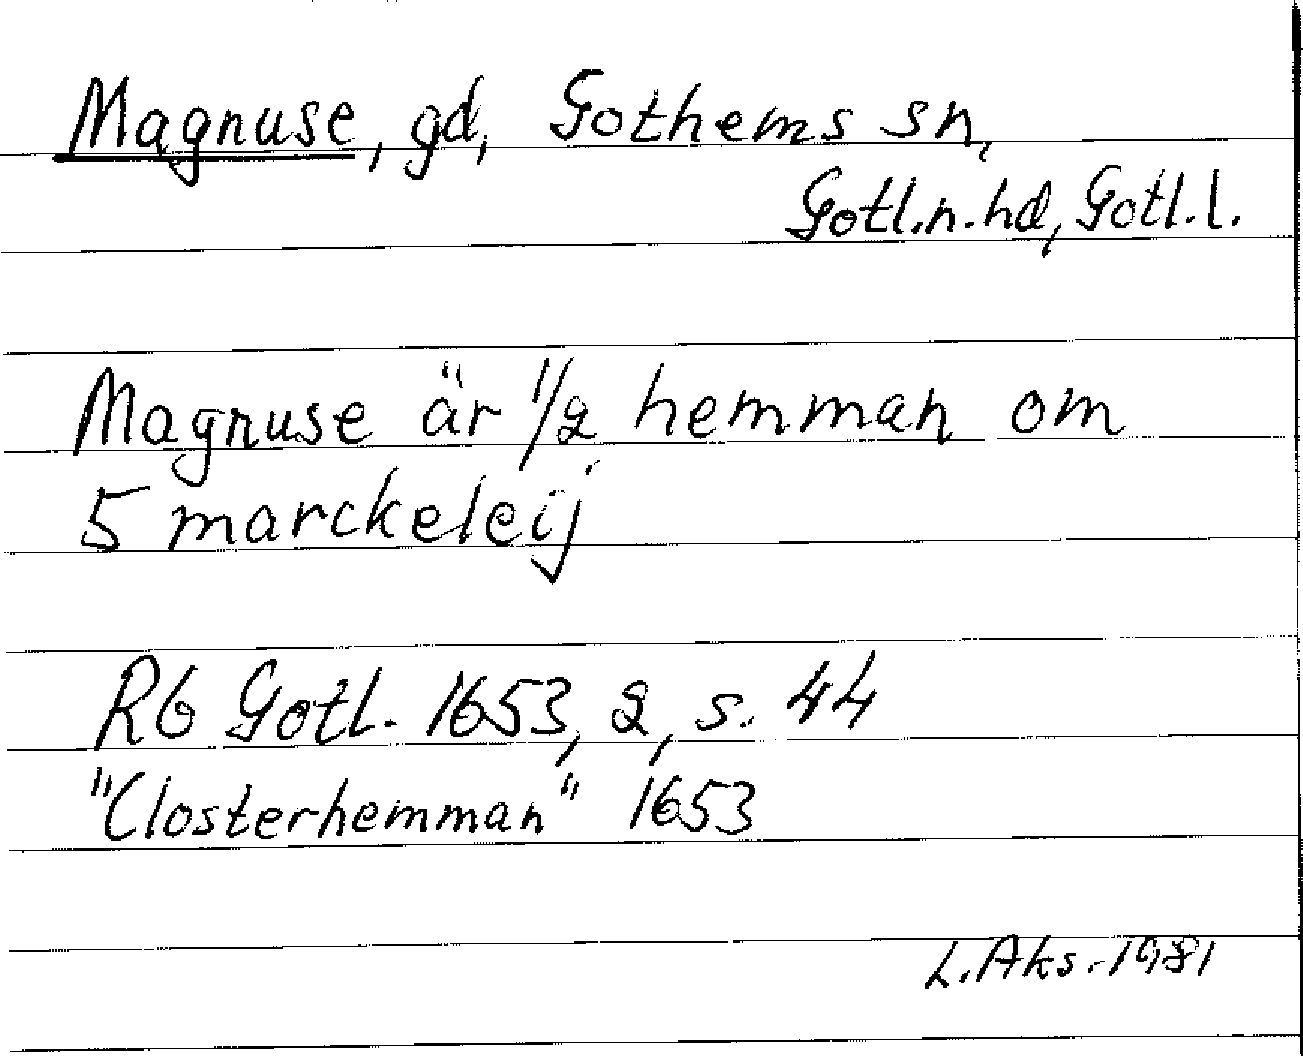 Magnuse, gd, Gothems sn,
Gotl.n.hd, Gotl.l.
Magnuse är 1/2 hemman om
5 marckeleij
Rb Gotl. 1653, 2, s. 44
"Closterhemman" 1653
L.Aks.-1981